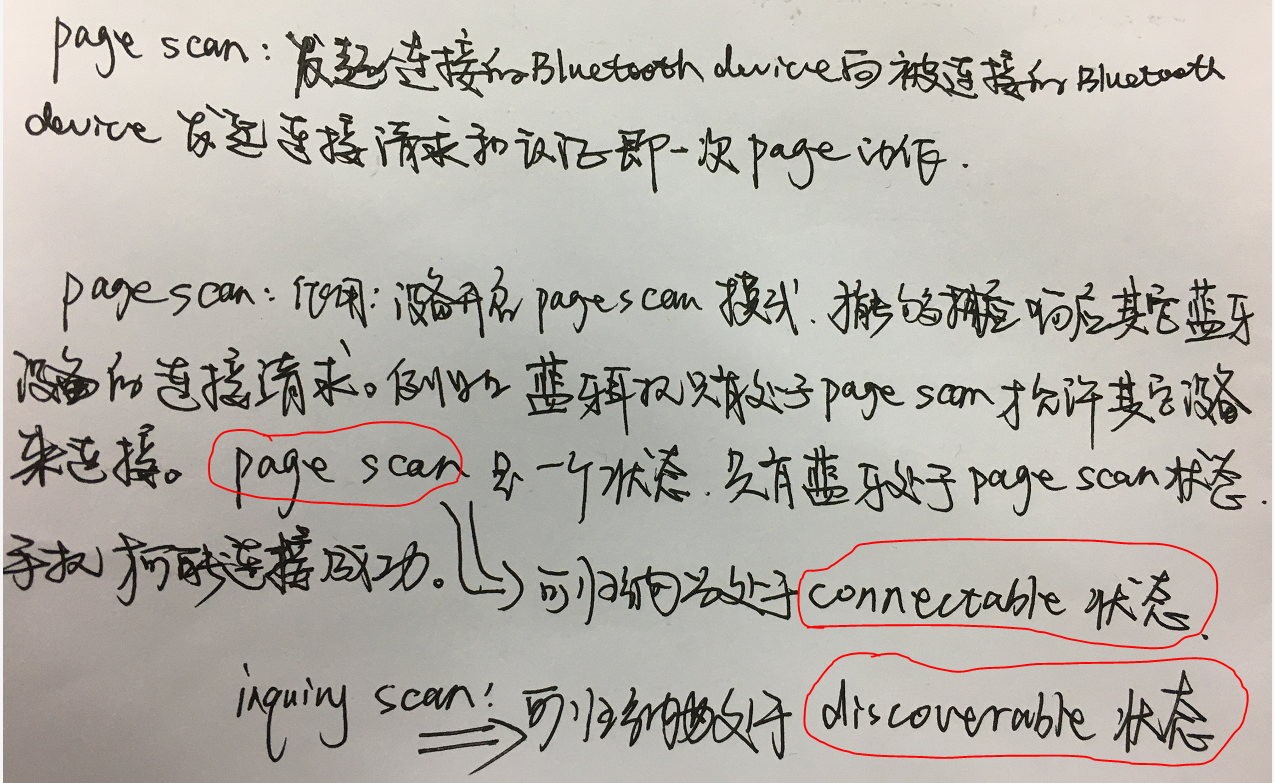 page scan: 发起连接的Bluetooth device向被连接的Bluetooth
device 发起连接请求和认证即一次page动作.
page scan: 作用: 设备开启 page scan 模式. 能够 响应其它蓝牙
设备的连接请求。例如 蓝牙耳机只有处于page scan才允许其它设备
来连接。 page scan 是一个状态. 只有蓝牙处于page scan状态.
手机 才可能连接成功。 可归纳为处于connectable 状态.
inquiry scan: 可归纳为处于 discoverable 状态